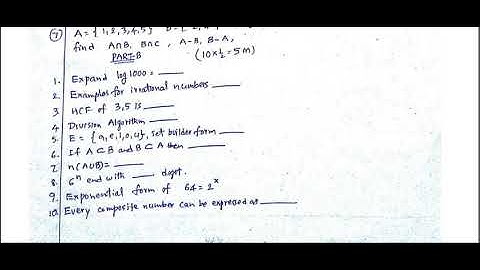 (7) A = {1,2,3,4,5} B = {2,4,
find A∩B, B∩C, A-B, B-A,
PART-B (10×½=5M)
1. Expand log1000 = ____
2. Examples for irrational numbers ____
3. HCF of 3,5 is ____
4. Division Algorithm ____
5. E = {a,e,i,o,u}, set builder form ____
6. If A⊂B and B⊂A then ____
7. n(A∪B) = ____
8. 6ⁿ end with ____ digit.
9. Exponential form of 64 = 2ˣ
10. Every composite number can be expressed as ____